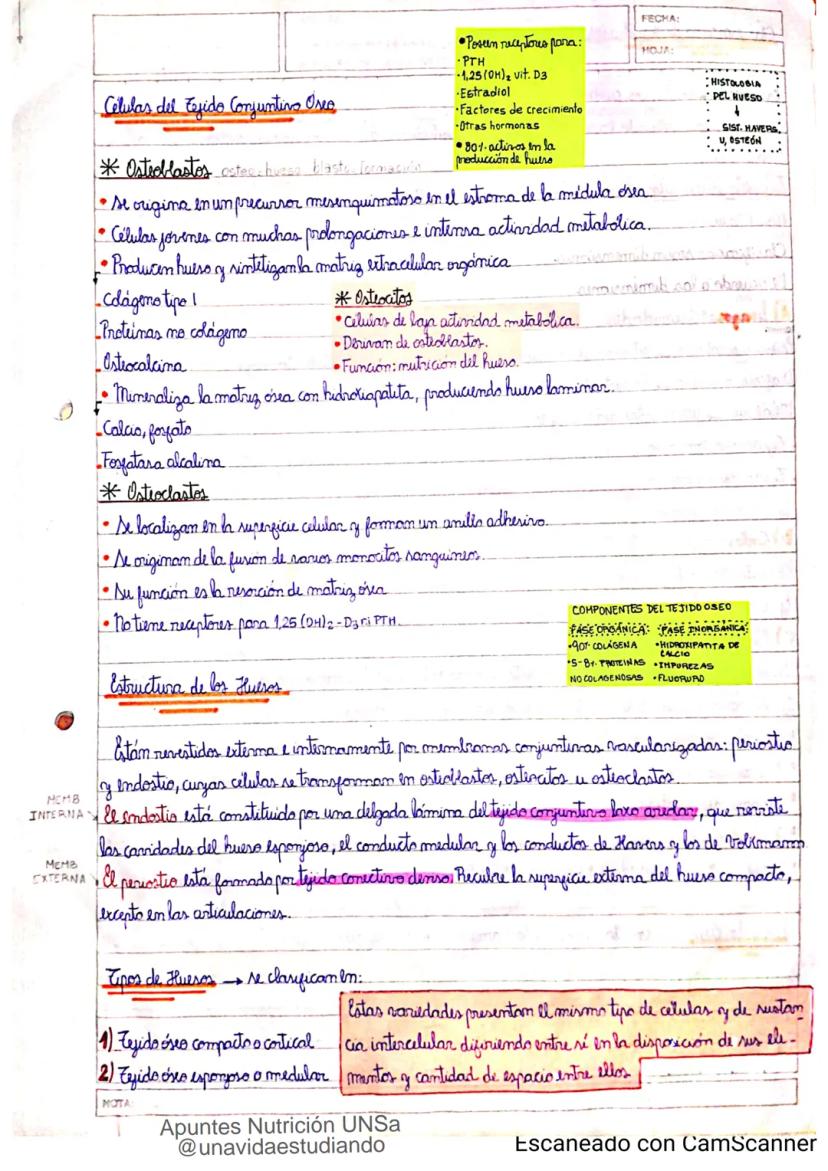 FECHA:
HOJA:
•Poseen receptores para:
·PTH
·1,25(OH)₂ vit. D3
·Estradiol
·Factores de crecimiento
·Otras hormonas
•80% activos en la
producción de hueso
HISTOLOGIA
DEL HUESO
↓
SIST. HAVERS
U, OSTEÓN
Células del Tejido Conjuntivo Oseo
* Osteoblastos osteo=hueso blasto=formación
• Se origina en un precursor mesenquimatoso en el estroma de la médula ósea.
• Células jóvenes con muchas prolongaciones e intensa actividad metabólica.
• Producen hueso y sintetizan la matriz extracelular orgánica
-Colágeno tipo 1
-Proteínas no colágeno
-Osteocalcina
* Osteocitos
• Células de baja actividad metabólica.
• Derivan de osteoblastos.
• Función: nutrición del hueso.
• Mineraliza la matriz ósea con hidroxiapatita, produciendo hueso laminar.
-Calcio, fosfato
-Fosfatasa alcalina
* Osteoclastos
• Se localizan en la superficie celular y forman un anillo adhesivo.
• Se originan de la fusión de varios monocitos sanguineos.
• Su función es la resorción de matriz ósea
• No tiene receptores para 1,25 (OH)₂-D3 ni PTH.
COMPONENTES DEL TEJIDO OSEO
FASE ORGÁNICA:
•90% COLÁGENA
•5-8% PROTEINAS
NO COLAGENOSAS
FASE INORGÁNICA:
•HIDROXIPATITA DE
CALCIO
•IMPUREZAS
•FLUORURO
Estructura de los Huesos
Están revestidos externa e internamente por membranas conjuntivas vascularizadas: periostio
y endostio, cuyas células se transforman en ostioblastos, osteocitos u osteoclastos.
MEMB
INTERNA
El endostio está constituido por una delgada lámina del tejido conjuntivo laxo areolar, que reviste
las cavidades del hueso esponjoso, el conducto medular y los conductos de Havers y los de Volkmann
MEMB
EXTERNA
El periostio está formado por tejido conectivo denso. Recubre la superficie externa del hueso compacto,
excepto en las articulaciones.
Tipos de Huesos → se clasifican en:
1) Tejido óseo compacto o cortical
2) Tejido óseo esponjoso o medular
Estas variedades presentan el mismo tipo de células y de sustan
cia intercelular difiriendo entre sí en la disposición de sus ele-
mentos y cantidad de espacio entre ellos
NOTA:
Apuntes Nutrición UNSa
@unavidaestudiando
Escaneado con CamScanner